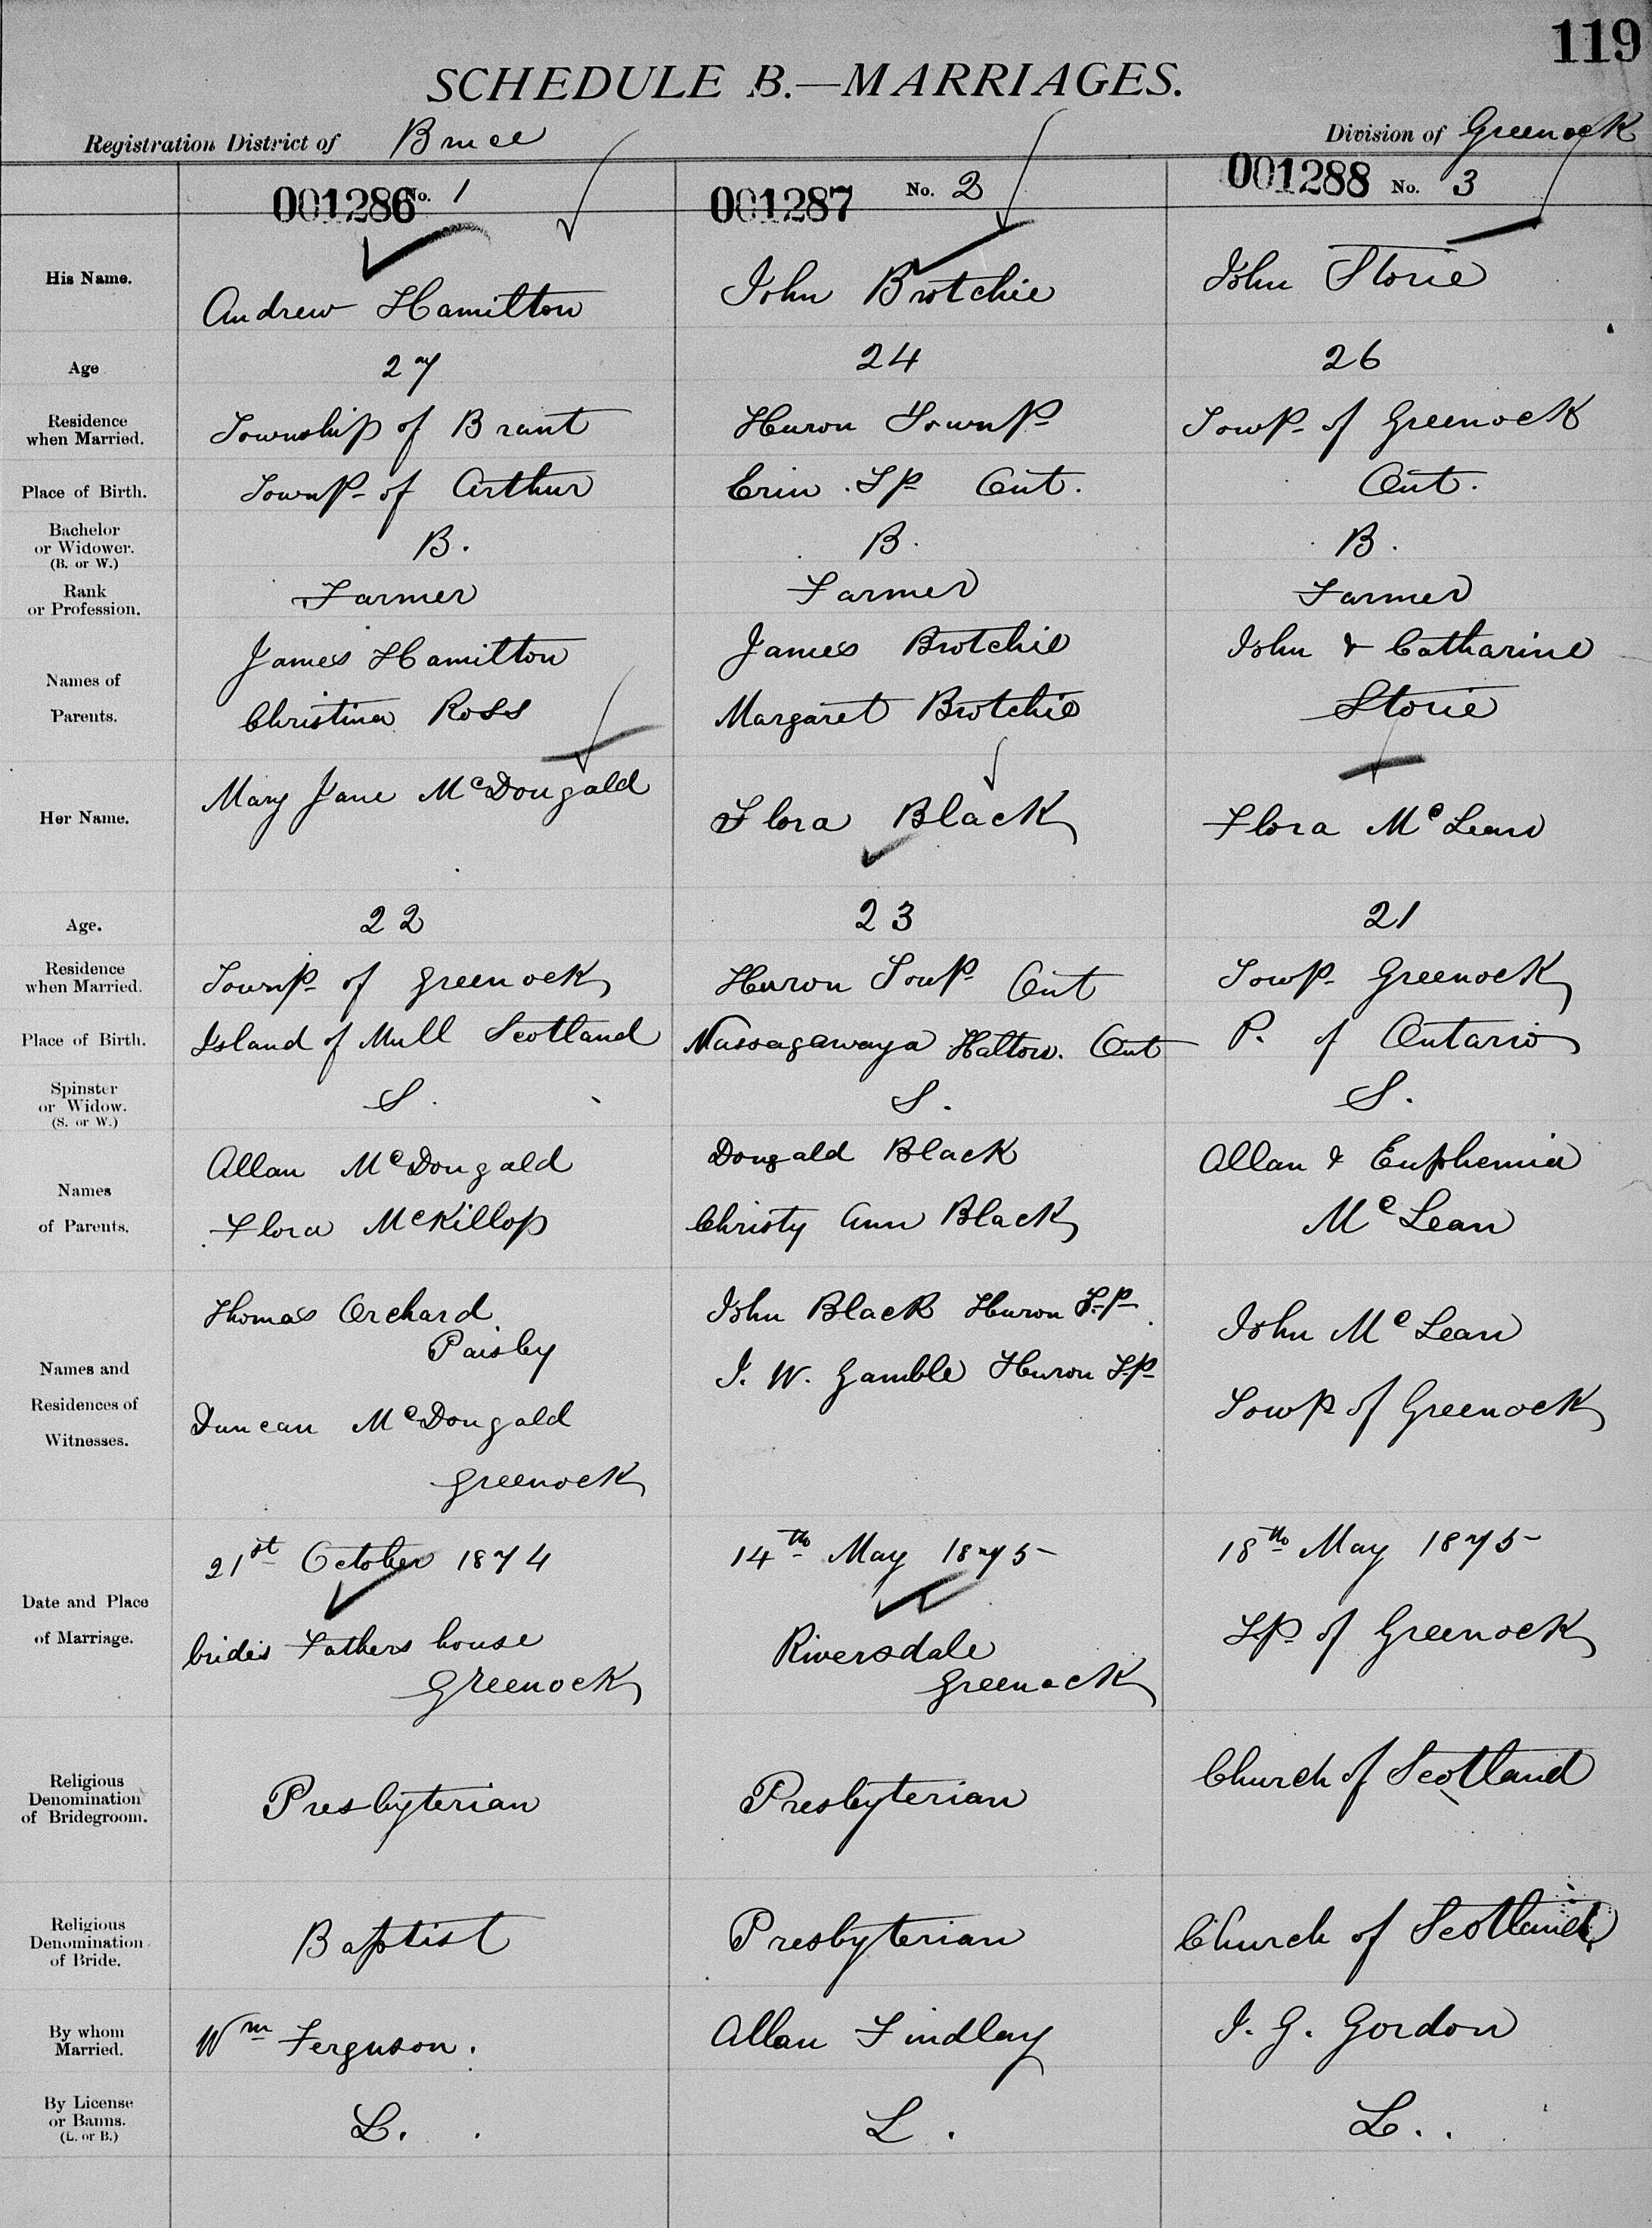 119
SCHEDULE B.—MARRIAGES.
Registration District of Bruce Division of Greenock
001286 No. 1 001287 No. 2 001288 No. 3
His Name. Andrew Hamilton John Brotchie John Storie
Age 27 24 26
Residence when Married. Township of Brant Huron Townp Towp of Greenock
Place of Birth. Townp of Arthur Erin Tp Ont. Ont.
Bachelor or Widower. (B. or W.) B. B. B.
Rank or Profession. Farmer Farmer Farmer
Names of Parents.
James Hamilton James Brotchie John & Catharine
Christina Ross Margaret Brotchie Storie
Her Name. Mary Jane McDougald Flora Black Flora McLean
Age. 22 23 21
Residence when Married. Townp of Greenock Huron Towp Ont Towp Greenock
Place of Birth. Island of Mull Scotland Nassagawaya Halton. Ont P. of Ontario
Spinster or Widow. (S. or W.) S. S. S.
Names of Parents.
Allan McDougald Dougald Black Allan & Euphemia
Flora McKillop Christy Ann Black McLean
Names and Residences of Witnesses.
Thomas Orchard John Black Huron Tp John McLean
Paisley J. W. Gamble Huron Tp
Duncan McDougald Towp of Greenock
Greenock
Date and Place of Marriage.
21st October 1874 14th May 1875 18th May 1875
bride's Fathers house Riversdale Tp of Greenock
Greenock Greenock
Religious Denomination of Bridegroom. Presbyterian Presbyterian Church of Scotland
Religious Denomination of Bride. Baptist Presbyterian Church of Scotland
By whom Married. Wm Ferguson. Allan Findlay J. G. Gordon
By License or Banns. (L. or B.) L. L. L.